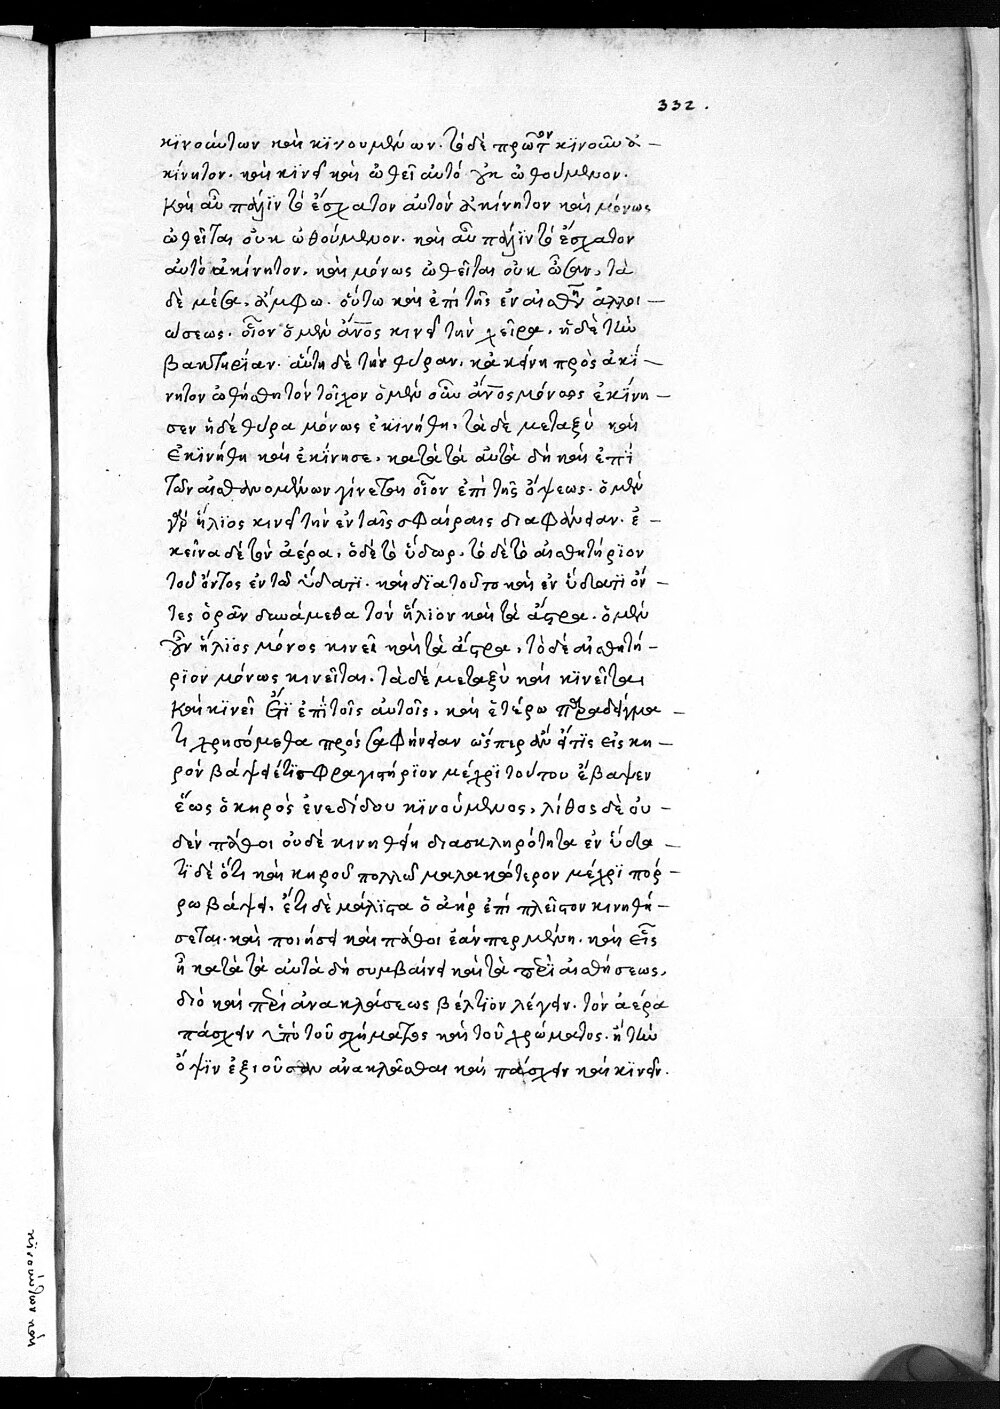 332.
κϊνούντων καὶ κϊνουμένων. τὸ δὲ πρῶτον κϊνοῦν ἀ-
κίνητον. καὶ κϊνεῖ καὶ ὠθεῖ αὐτό οὐκ ὠθούμενον.
Καὶ αὖ πάλϊν τὸ ἔσχατον αὐτὸν ἀκίνητον καὶ μόνως
ὠθεῖται οὐκ ὠθούμενον. καὶ αὖ πάλϊν τὸ ἔσχατον
αὐτὸ ἀκίνητον. καὶ μόνως ὠθεῖται οὐκ ὦσαν, τὰ
δὲ μέσα, ἄμφω. οὕτω καὶ ἐπὶ τῆς ἐν αἰσθήσει ἀλλοι-
ώσεως. οἷον ὁ μὲν ἄνος κινεῖ τὴν χεῖρα, ἡ δὲ τὴν
βακτηρίαν. αὕτη δὲ τὴν θύραν. κἀκείνη πρὸς ἀκϊ-
νητον ὠθήσῃ τὸν τοῖχον ὁ μὲν οὖν ἄνος μόνος ἐκίνη-
σεν ἡ δὲ θύρα μόνως ἐκϊνήθη. τὰ δὲ μεταξὺ καὶ
Ἐκϊνήθη καὶ ἐκίνησε, κατὰ τὰ αὐτὰ δὴ καὶ ἐπὶ
τῶν αἰσθανομένων γίνεται οἷον ἐπὶ τῆς ὄψεως. ὁ μὲν
γὰρ ἥλϊος κινεῖ τὴν ἐν ταῖς σφαίραις διαφάνειαν. ἐ-
κεῖνα δὲ τὸν ἀέρα, ὁ δὲ τὸ ὕδωρ, τὸ δὲ τὸ αἰσθητήριον
τοῦ ὄντος ἐν τῶ ὕδατϊ. καὶ δϊατοῦτο καὶ ἐν ὕδατϊ ὄν-
τες ὁρᾶν δυνάμεθα τὸν ἥλϊον καὶ τὰ ἄστρα. ὁ μὲν
οὖν ἥλϊος μόνος κινεῖ καὶ τὰ ἄστρα, τὸ δὲ αἰσθητή-
ρϊον μόνως κινεῖται. τὰ δὲ μεταξὺ καὶ κϊνεῖται
Καὶ κϊνεῖ ἔτϊ ἐπὶ τοῖς αὐτοῖς. καὶ ἑτέρω παραδείγμα-
τι χρησόμεθα πρὸς σαφήνειαν ὥσπερ ἂν εἴτϊς εἰς κη-
ρὸν βάψειέ τϊς σφραγιστήρϊον μέχρϊ τούτου ἔβαψεν
ἕως ὁ κηρὸς ἐνεδίδου κϊνούμενος, λίθος δὲ οὐ-
δὲν πάθοι οὐδὲ κινηθείη διασκληρότητα ἐν ὕδα-
τϊ δὲ ὅτι καὶ κηροῦ πολλῶ μαλακώτερον μέχρϊ πόρ-
ρω βάψει, ἔτι δὲ μάλϊστα ὁ ἀὴρ ἐπὶ πλεῖστον κινηθή-
σεται. καὶ ποιήσει καὶ πάθοι ἐάν περ μένη. καὶ εἷς
ἦ κατὰ τὰ αὐτὰ δὴ συμβαίνει καὶ τὰ περὶ αἰσθήσεως,
διὸ καὶ περὶ ἀνακλάσεως βέλτϊον λέγειν. τὸν ἀέρα
πάσχειν ὑπὸ τοῦ σχήματος καὶ τοῦ χρώματος. ἢ τὴν
ὄψϊν ἐξιοῦσαν ἀνακλᾶσθαι καὶ πάσχειν καὶ κϊνεῖν.
κϊνούντων καὶ